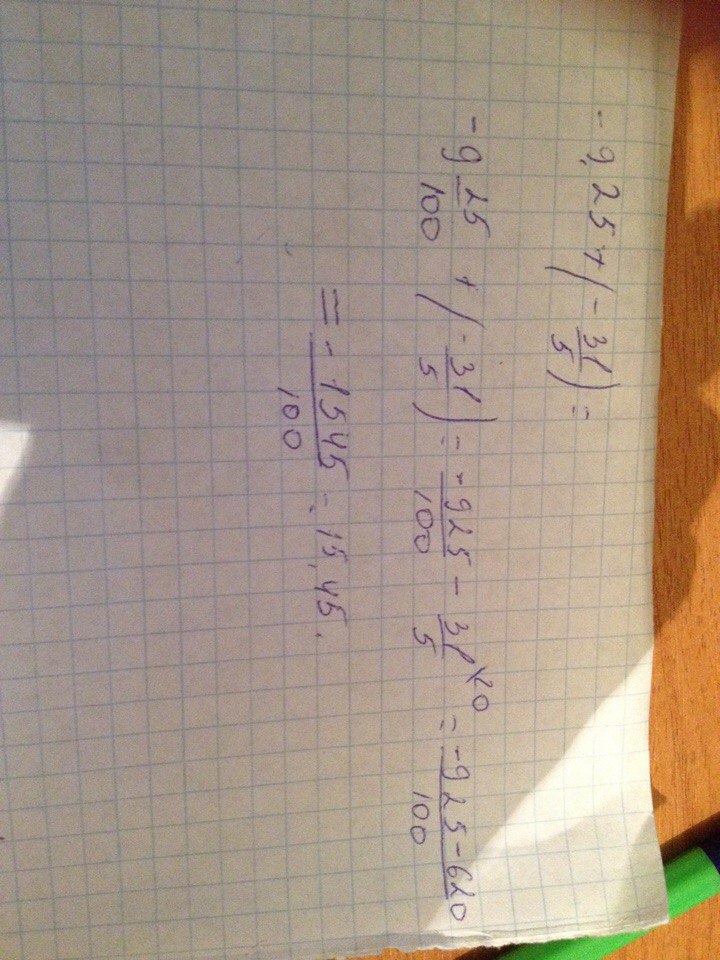 -9,25 + (-31/5) =
-9 25/100 + (-31/5) = -925/100 - 31/5 ×20 = -925-620/100
= -1545/100 = 15,45.